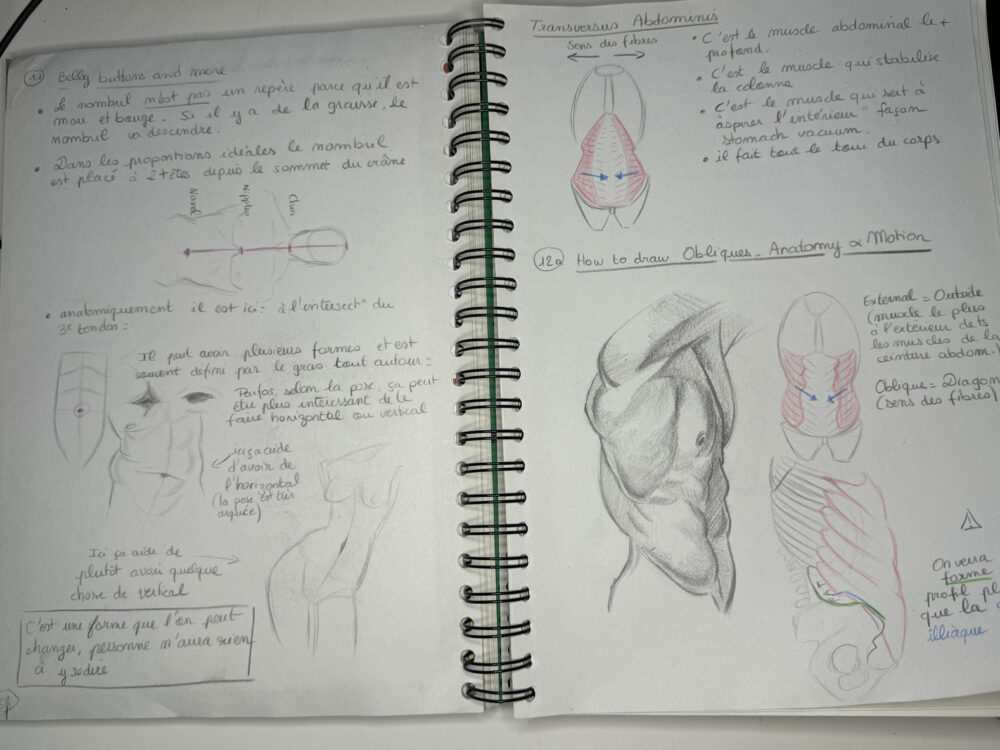 11 Belly buttons and more
• Le nombril n'est pas un repère parce qu'il est
mou et bouge. Si il y a de la graisse, le
nombril va descendre.
• Dans les proportions idéales le nombril
est placé à 2 têtes depuis le sommet du crâne
Navel
Nipple
Chin
• anatomiquement il est ici: à l'intersect° du
3e tendon:
Il peut avoir plusieurs formes et est
souvent défini par le gras tout autour:
Parfois, selon la pose, ça peut
être plus intéressant de le
faire horizontal ou vertical
ici ça aide
d'avoir de
l'horizontal
(la pose est très
Ici ça aide de
plutôt avoir quelque
chose de vertical
C'est une forme que l'on peut
changer, personne n'aura rien
à y redire
Transversus Abdominis
Sens des fibres
• C'est le muscle abdominal le +
profond.
• C'est le muscle qui stabilise
la colonne
• C'est le muscle qui sert à
"aspirer l'intérieur" façon
stomach vacuum.
• il fait tout le tour du corps
12a How to draw Obliques - Anatomy & Motion
External = Outside
(muscle le plus
à l'extérieur de ts
les muscles de la
ceinture abdom.)
Oblique = Diagon
(sens des fibres)
On verra
forme
profil pl
que la
illiaque